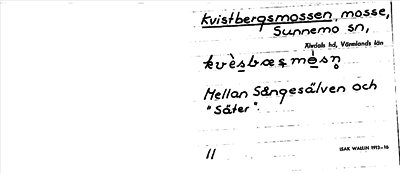 Kvistbergsmossen, mosse,
Sunnemo sn,
Älvdals hd, Värmlands län
Mellan Sångesälven och
"Säter".
11
ISAK WALLIN 1913-16